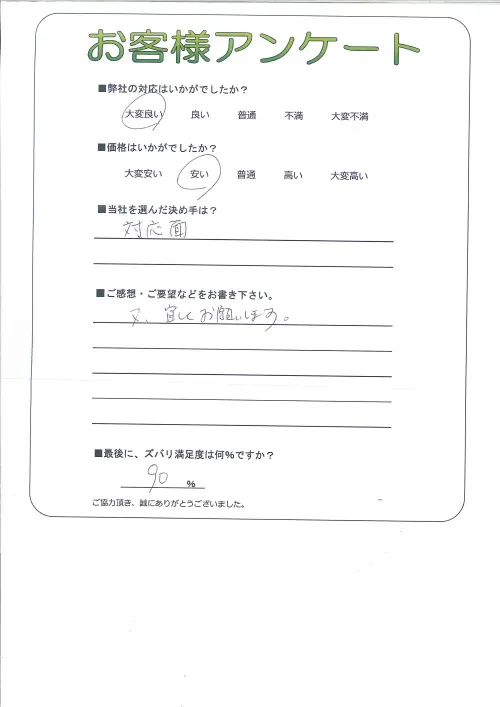 お客様アンケート
■弊社の対応はいかがでしたか？
大変良い 良い 普通 不満 大変不満
■価格はいかがでしたか？
大変安い 安い 普通 高い 大変高い
■当社を選んだ決め手は？
対応面
■ご感想・ご要望などをお書き下さい。
又、宜しくお願いします。
■最後に、ズバリ満足度は何％ですか？
90 ％
ご協力頂き、誠にありがとうございました。